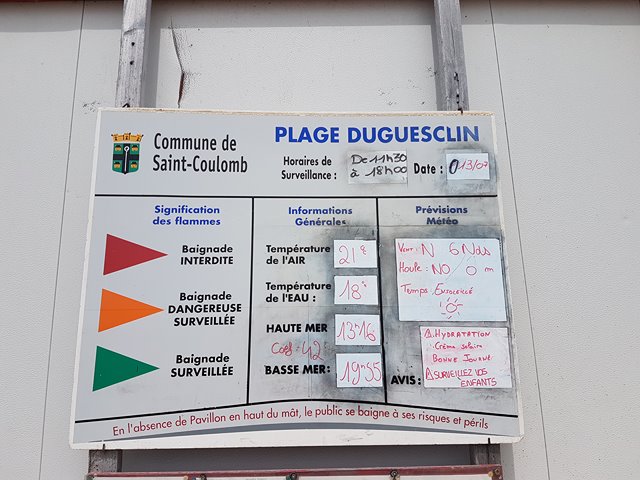 Commune de
Saint-Coulomb
PLAGE DUGUESCLIN
Horaires de
Surveillance :
De 11h30
à 18h00
Date :
13/07
Signification
des flammes
Baignade
INTERDITE
Baignade
DANGEREUSE
SURVEILLÉE
Baignade
SURVEILLÉE
Informations
Générales
Température
de l'AIR
21°
Température
de l'EAU :
18°
HAUTE MER
13h16
Coef : 42
BASSE MER :
19h55
Prévisions
Météo
Vent : N 6 Nds
Houle : NO 0 m
Temps Ensoleillé
AVIS :
⚠ HYDRATATION
Crème solaire
BONNE JOURNÉE
⚠ SURVEILLEZ VOS
ENFANTS
En l'absence de Pavillon en haut du mât, le public se baigne à ses risques et périls